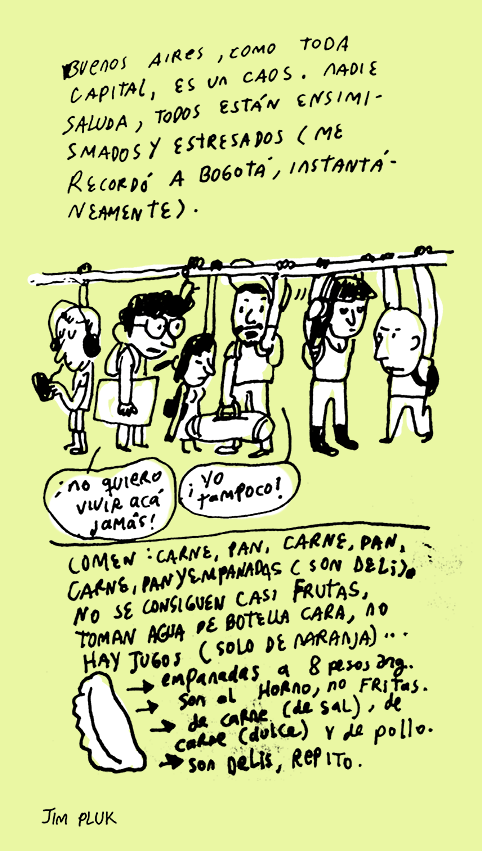 BUENOS AIRES, COMO TODA
CAPITAL, ES UN CAOS. NADIE
SALUDA, TODOS ESTÁN ENSIMI-
SMADOS Y ESTRESADOS (ME
RECORDÓ A BOGOTÁ, INSTANTÁ-
NEAMENTE).
¡NO QUIERO
VIVIR ACÁ
JAMÁS!
¡YO
TAMPOCO!
COMEN: CARNE, PAN, CARNE, PAN,
CARNE, PAN Y EMPANADAS (SON DELI).
NO SE CONSIGUEN CASI FRUTAS,
TOMAN AGUA DE BOTELLA CARA, NO
HAY JUGOS (SOLO DE NARANJA)...
→ empanadas a 8 pesos arg.
→ son al HORNO, no FRITAS.
→ de carne (de sal), de
carne (dulce) y de pollo.
→ son DELIS, REPITO.
JIM PLUK